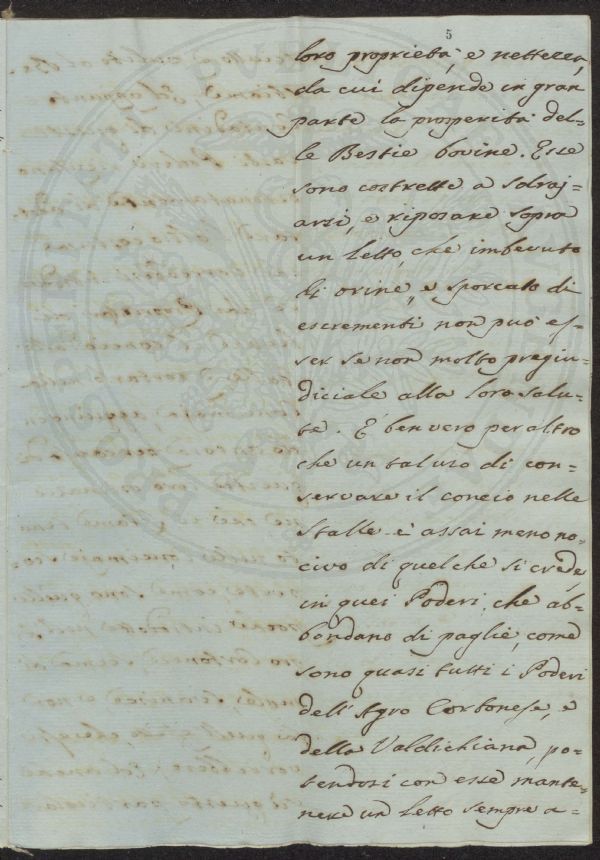 5
loro proprietà, e nettezza,
da cui dipende in gran
parte la prosperità del-
le Bestie bovine. Esse
sono costrette a sdraj-
arsi, e riposare sopra
un letto, che imbevuto
di orine, e sporcato di
escrementi non può es-
ser se non molto pregiu-
diciale alla loro salu-
te. E' ben vero peraltro
che un tal uso di con-
servare il concio nelle
Stalle è assai meno no-
civo di quelche si crede,
in quei Poderi, che ab-
bondano di paglie, come
sono quasi tutti i Poderi
dell'Agro Cortonese, e
della Valdichiana, po-
tendosi con esse mante-
nere un letto sempre a-